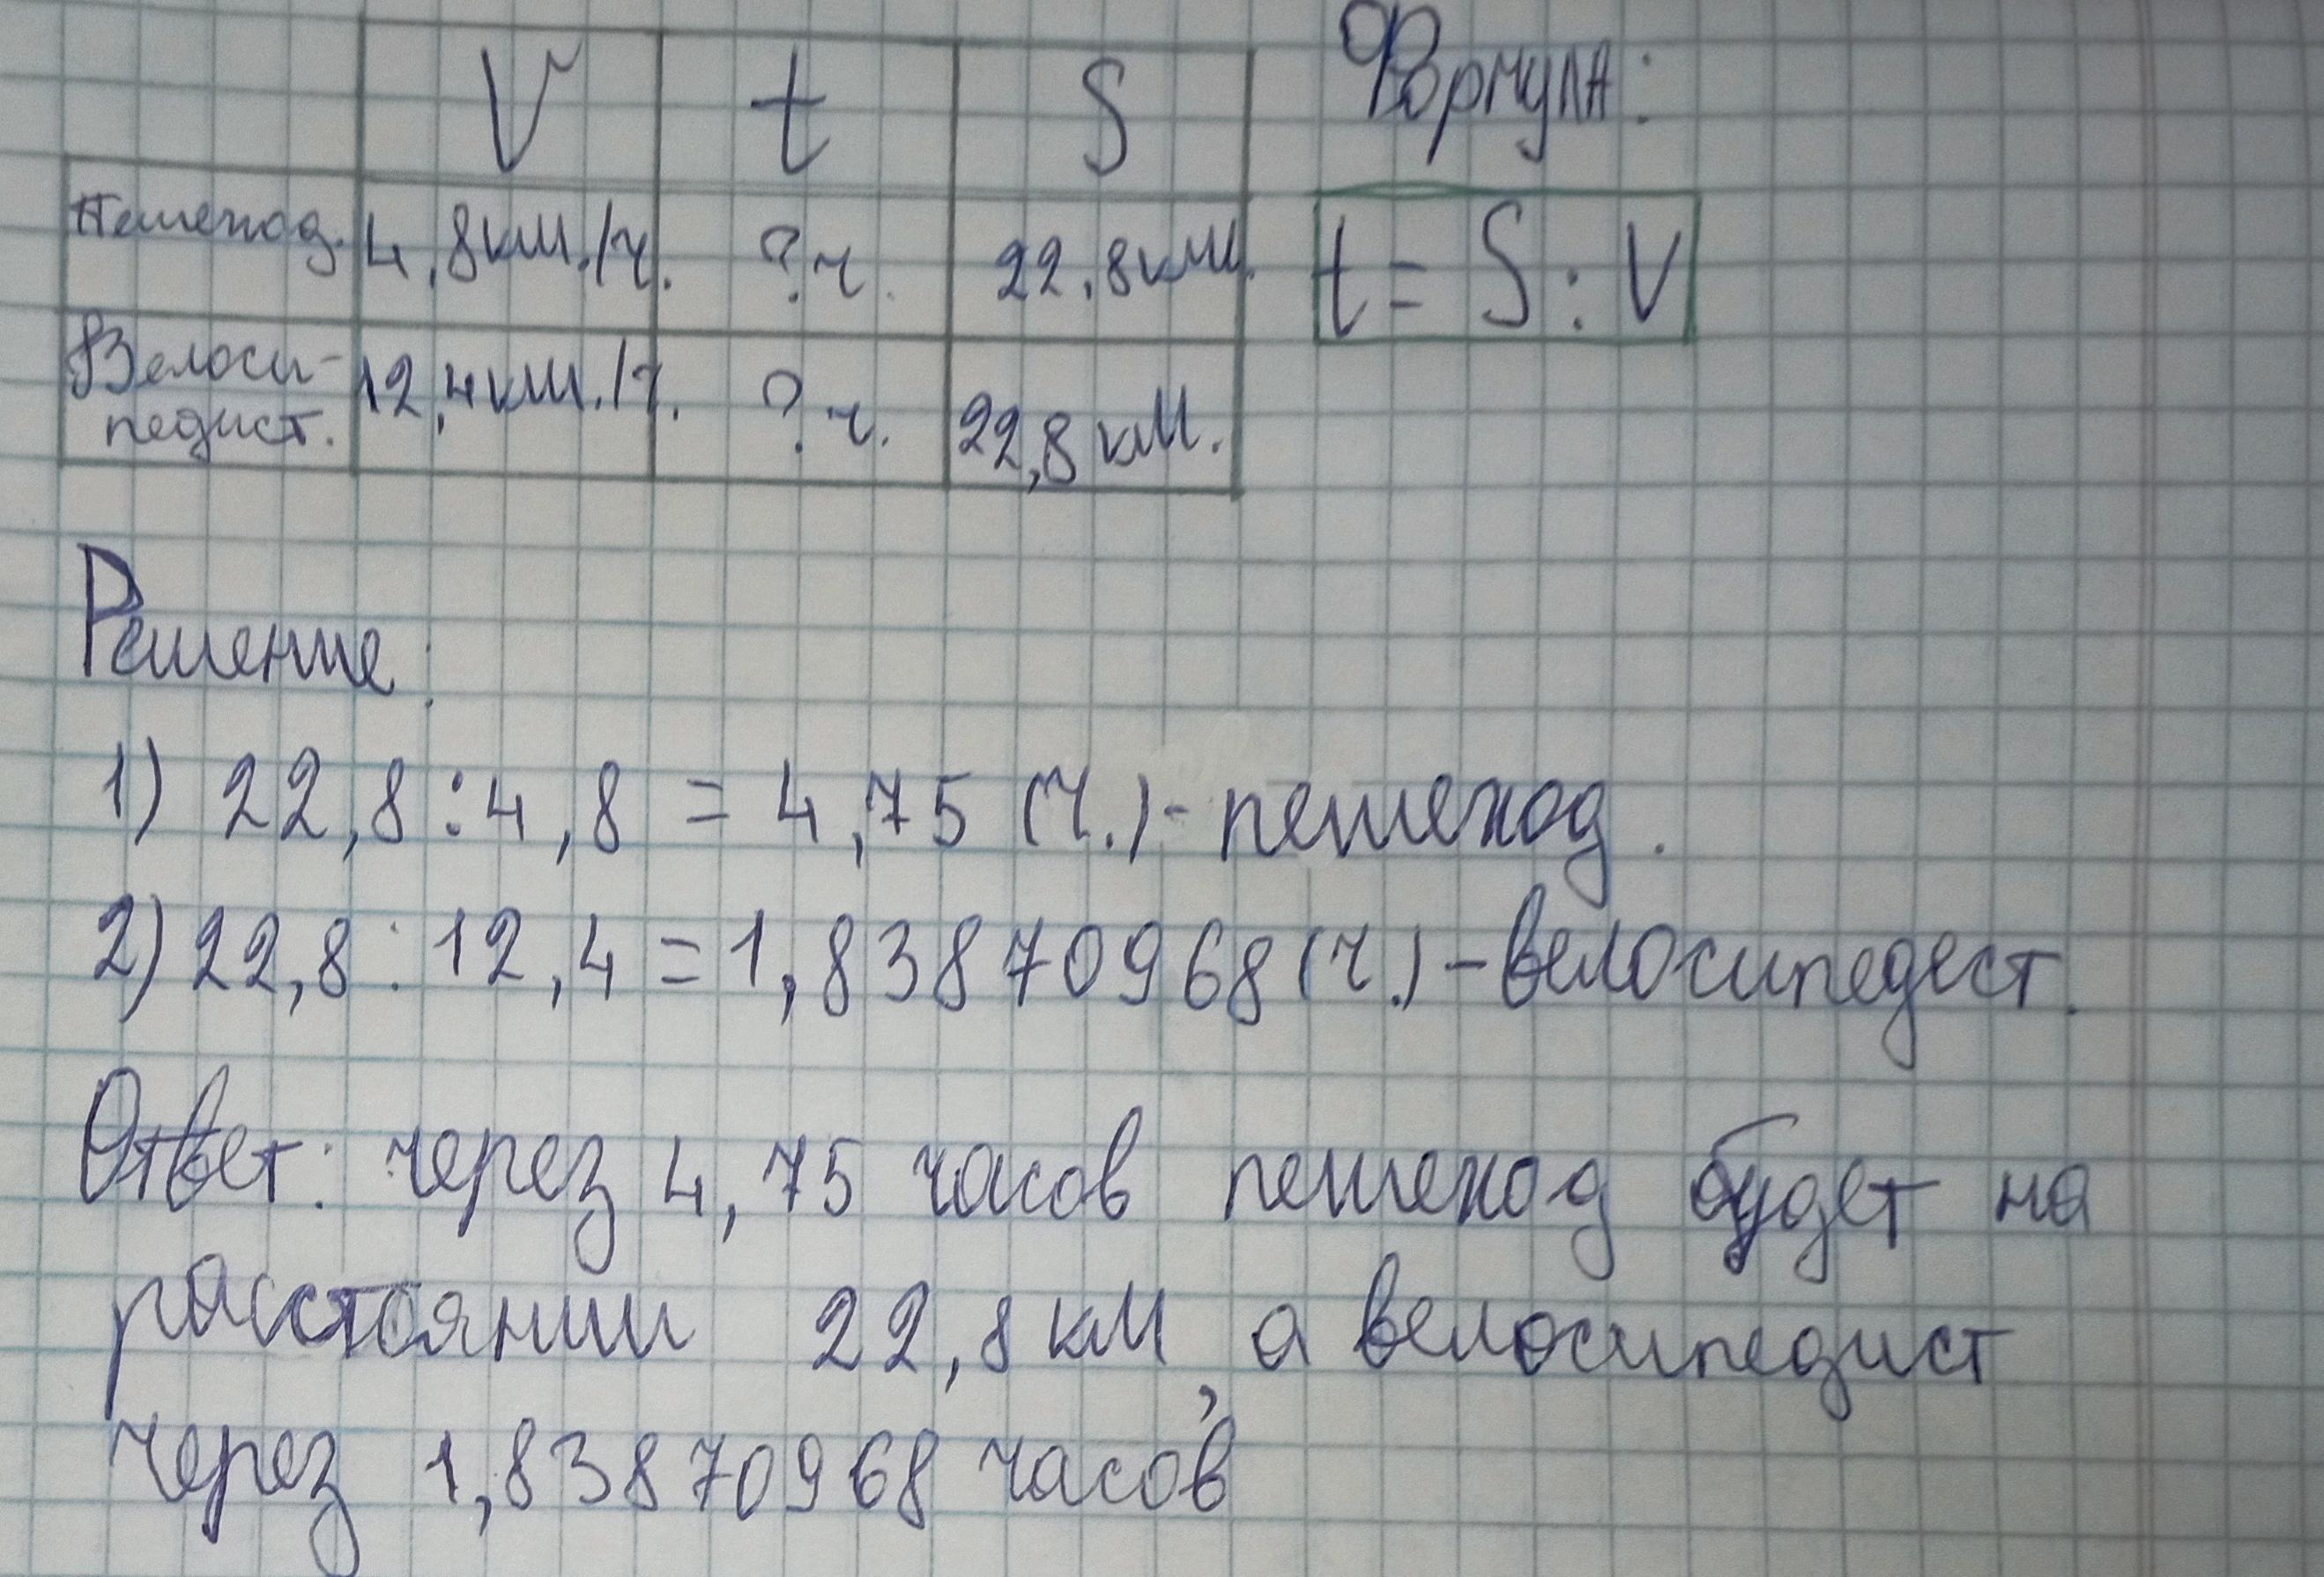 V t S Формула:
Пешеход. 4,8км./ч. ?ч. 22,8км. t = S : V
Велоси-
педист. 12,4км./ч. ?ч. 22,8 км.
Решение:
1) 22,8:4,8 = 4,75 (ч.)- пешеход.
2) 22,8 : 12,4 = 1,83870968 (ч.) - велосипедест.
Ответ: через 4,75 часов пешеход будет на
расстоянии 22,8 км, а велосипедист
через 1,83870968 часов